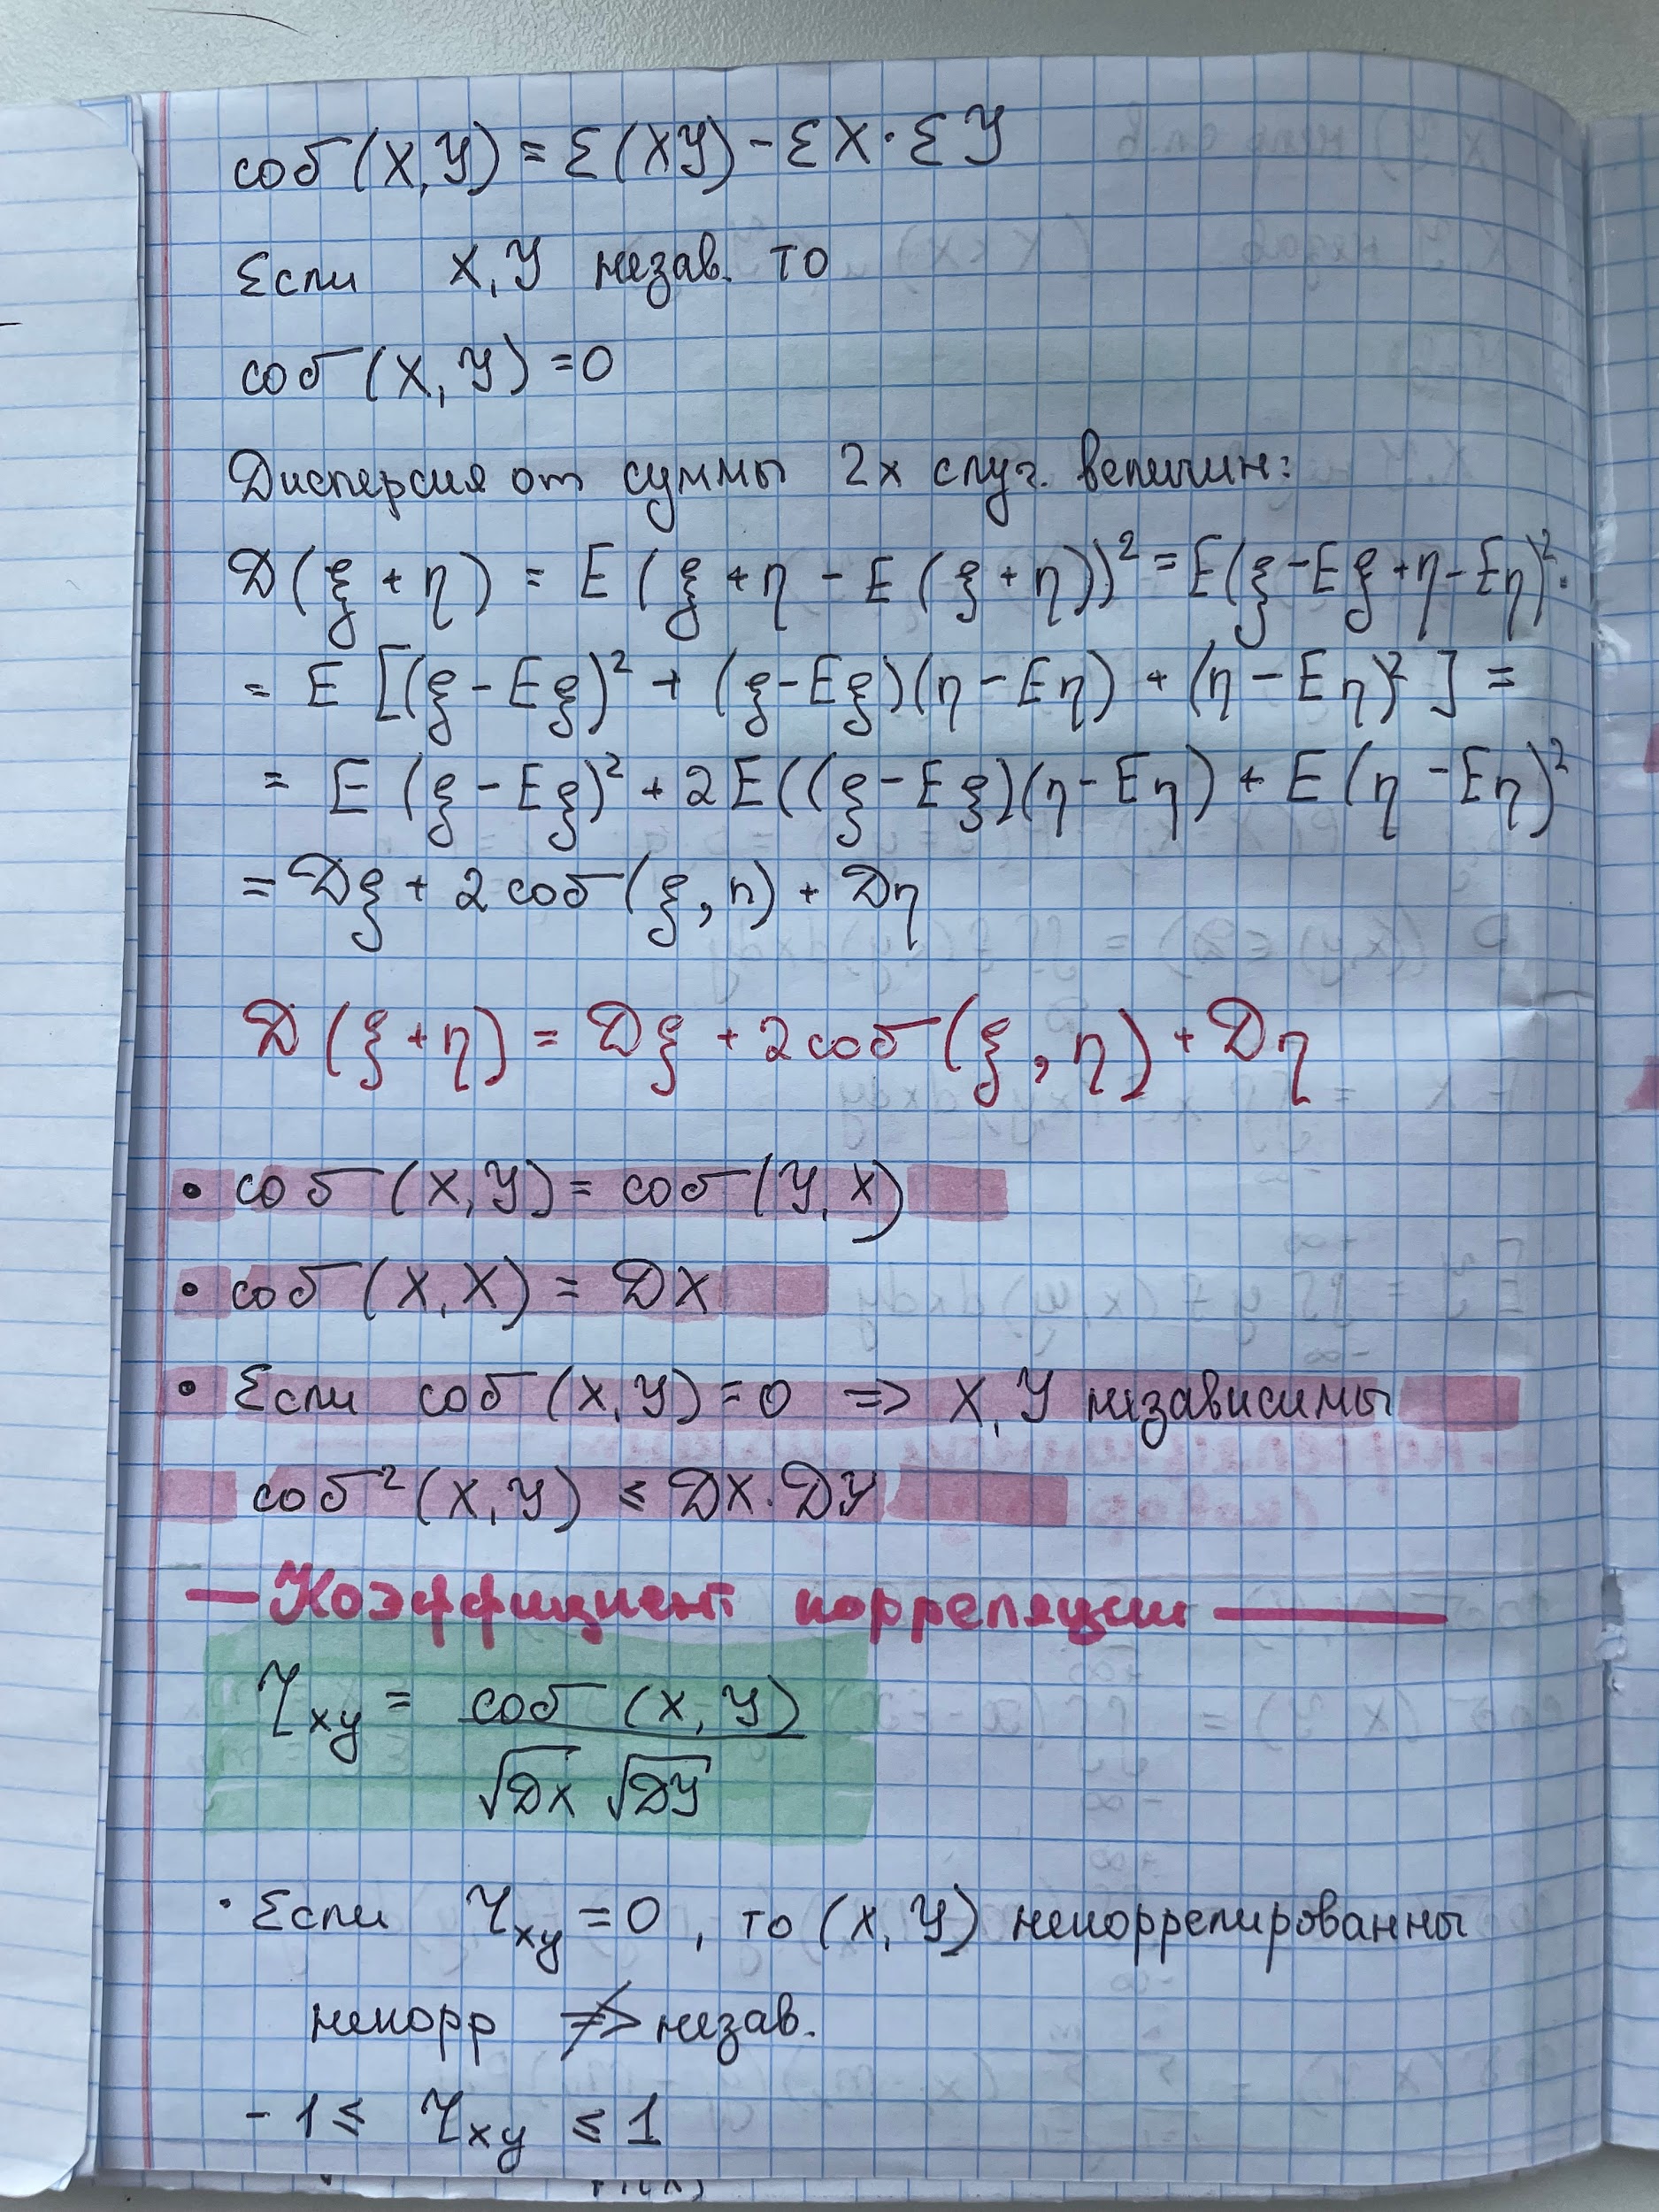 соб(X,Y) = E(XY) - EX·EY
Если X,Y незав. то
соб(X,Y)=0
Дисперсия от суммы 2х случ. величин:
D(ξ+η) = E(ξ+η - E(ξ+η))² = E(ξ-Eξ+η-Eη)²=
= E[(ξ-Eξ)² + (ξ-Eξ)(η-Eη) + (η-Eη)²] =
= E(ξ-Eξ)² + 2E((ξ-Eξ)(η-Eη) + E(η-Eη)²
= Dξ + 2соб(ξ,η) + Dη
D(ξ+η) = Dξ + 2соб(ξ,η) + Dη
• соб(X,Y) = соб(Y,X)
• соб(X,X) = DX
• Если соб(X,Y)=0 => X,Y независимы
соб²(X,Y) ≤ DX·DY
— Коэффициент корреляции —
r_xy = соб(X,Y) / √DX √DY
· Если r_xy = 0, то (X,Y) некоррелированны
некорр ≠> незав.
-1 ≤ r_xy ≤ 1